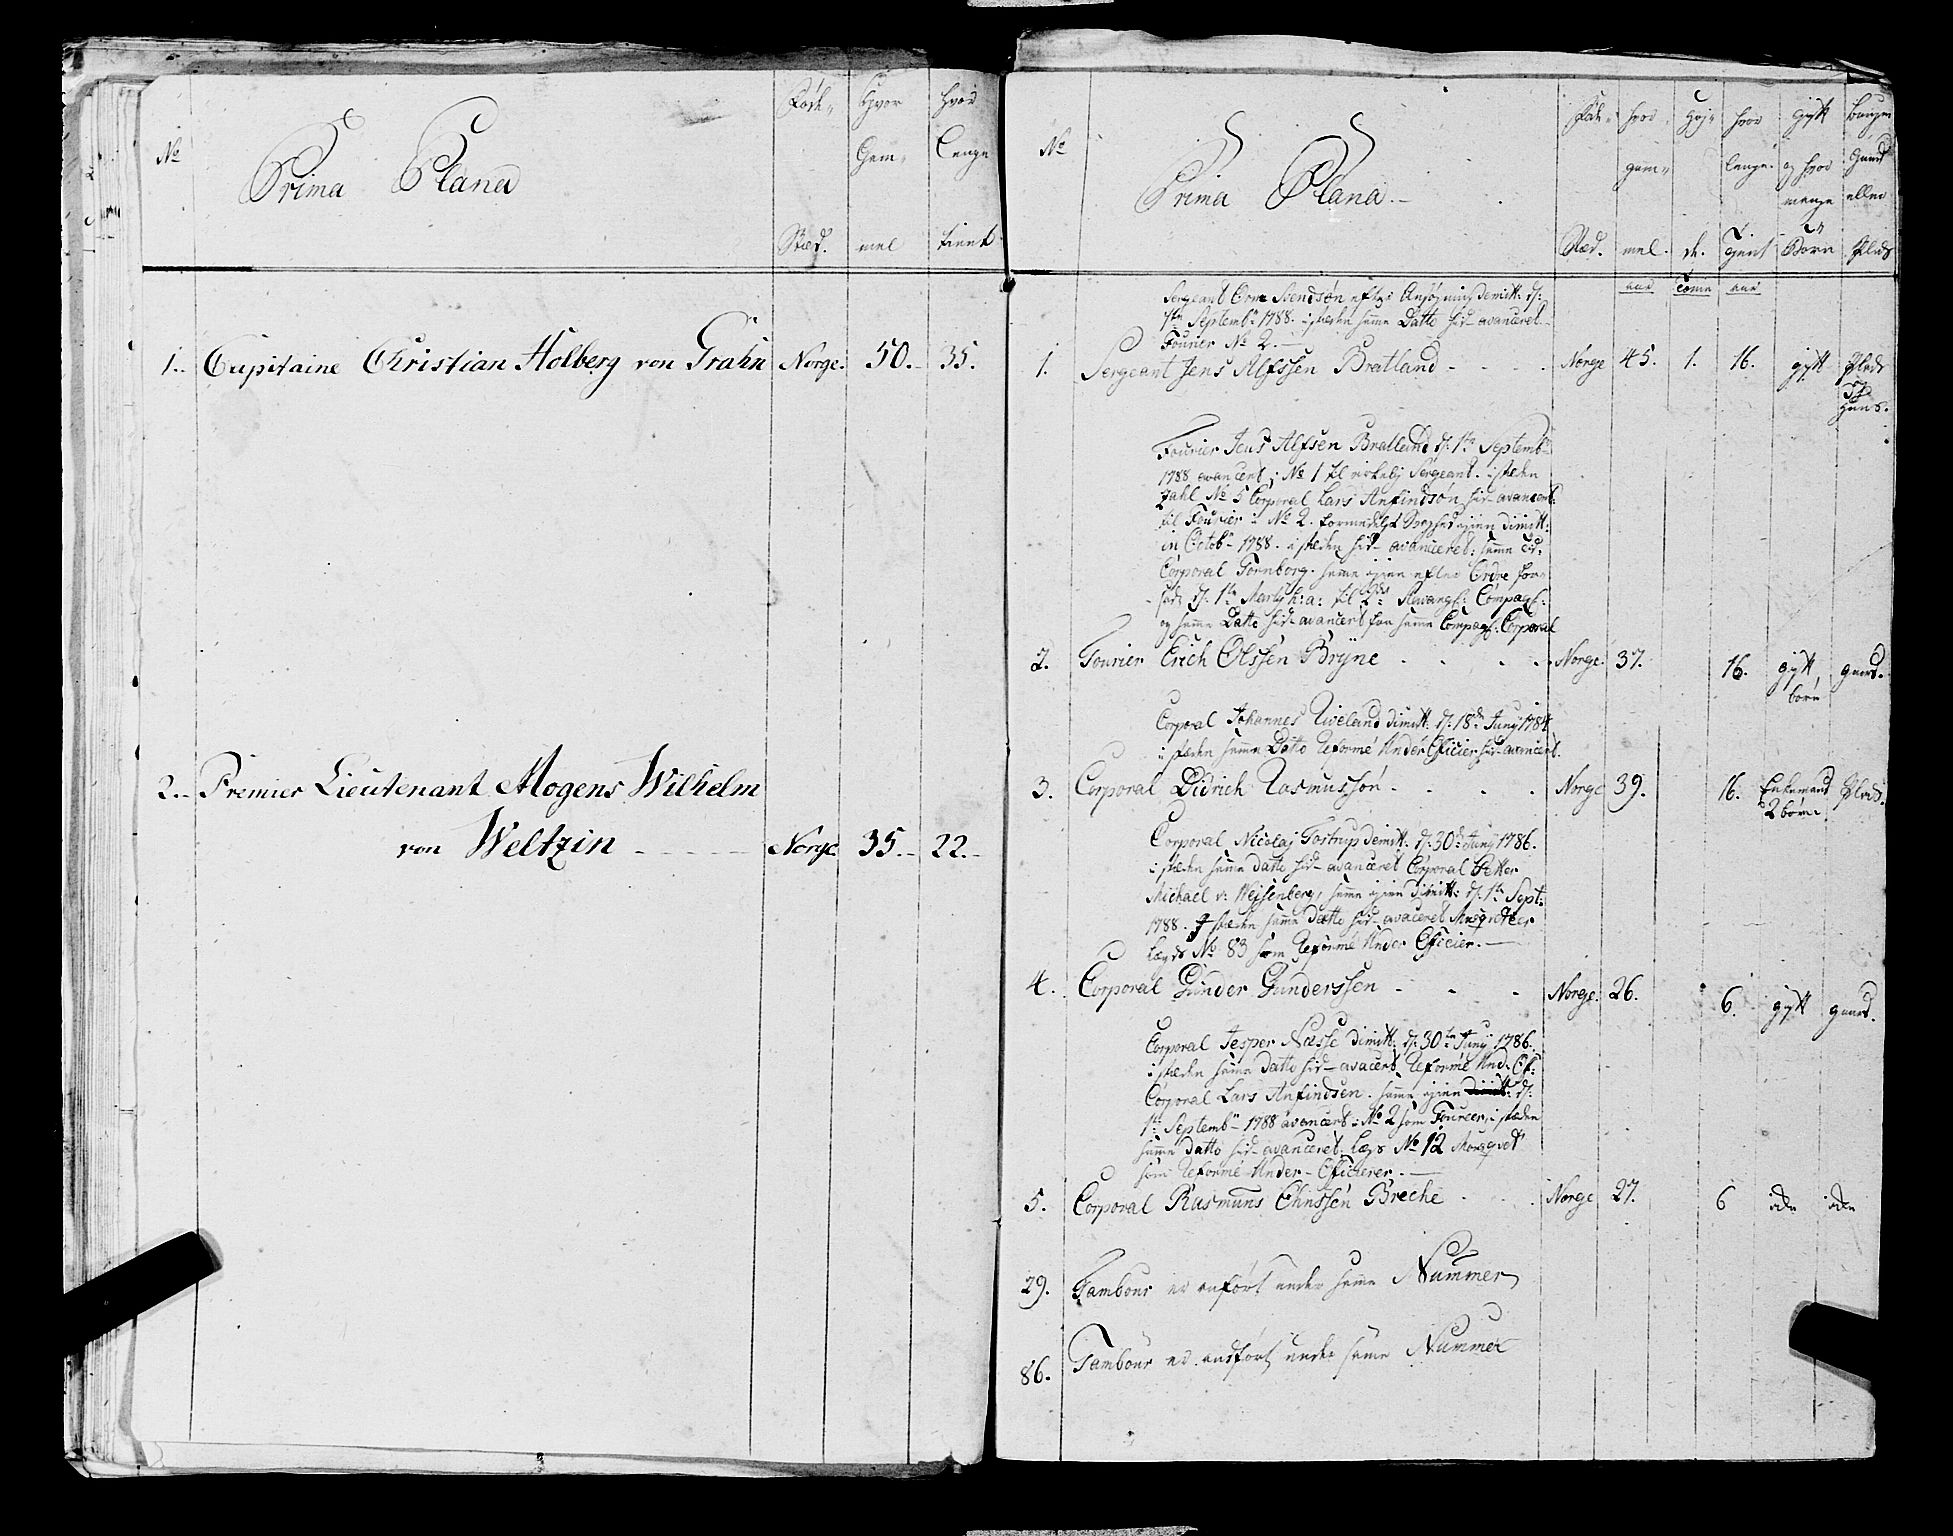 No
Prima Plana
Føde-
Stæd.
Hvor
Gam-
mel
hvor
lenge
tient
1. Capitaine Christian Holberg von Krahn Norge. 50. 35.
2. Premier Lieutenant Mogens Wilhelm
von Weltzin Norge 35. 22.
No
Prima Plana.
Føde-
Stæd.
hvor
gam-
mel.
aar
Høj-
de.
Tome
hvor
lenge
tjent
aar
gift
og hvor
mange
Børn
Gaard
eller
Plads
Sergeant Orm Svendsøn efter Ansøgning dimitt: d:
1ste Septembr 1788. i stæden samme Datto hid avanceret
Fourier No 2.
1. Sergeant Jens Alfssen Bratland Norge 45. 1. 16. gift Plads
og
Huus.
Fourier Jens Alfsen Bratland d. 1te Septembr
1788 avancert i No 1 til virkelig Sergeant. i stæden
No 5 Corporal Lars Anfindsøn hid avancert
til Fourier i No 2. formedelst igien dimitt:
in Octobr 1788. i stæden hid avanceret: samme
Corporal Tornborg. samme igien efter Ordre for-
sadt d. 1te Marty h: a: til 2det Compag:
og samme Datto hid avancert fra samme Compag: Corporal
2. Fourier Erich Olssen Bryne Norge. 37. 16. gift gaard.
børn
Corporal Johannes Tiveland dimitt: d. 18de Juny 1784
i stæden samme Datto Reformé Under Officier hid avancert.
3. Corporal Didrich Rasmussøn Norge 39. 16. Enkemand Plads.
2 børn
Corporal Nicolaj Tostrup dimitt: d. 30te Juny 1786.
i stæden samme datto hid avanceret Corporal Petter
Michael v: Weissenberg, samme igien dimitt: d. 1te Sept:
1788. I stæden samme Datto hid avaceret Musqveteer
Lægds No 83 som Reformé Under Officier.
4. Corporal Gunder Gunderssen Norge. 26. 6. gift gaard.
Corporal Jesper Næsse dimitt: d. 30te Juny 1786.
i stæden samme datto hid avacert Reformé Und. Of:
Corporal Lars Anfindsen. samme igien dimitt: d:
1te Septembr 1788 avancert i No 2 som Foureer, i stæden
samme datto hid avanceret, Lægs No 12 Musqvet
som Reformé Under Officierer.
5. Corporal Rasmuns Ohnssen Breche Norge 27. 6 idem idem
29. Tambour er anført under samme Nummer
86. Tambour er andført under samme Nummer